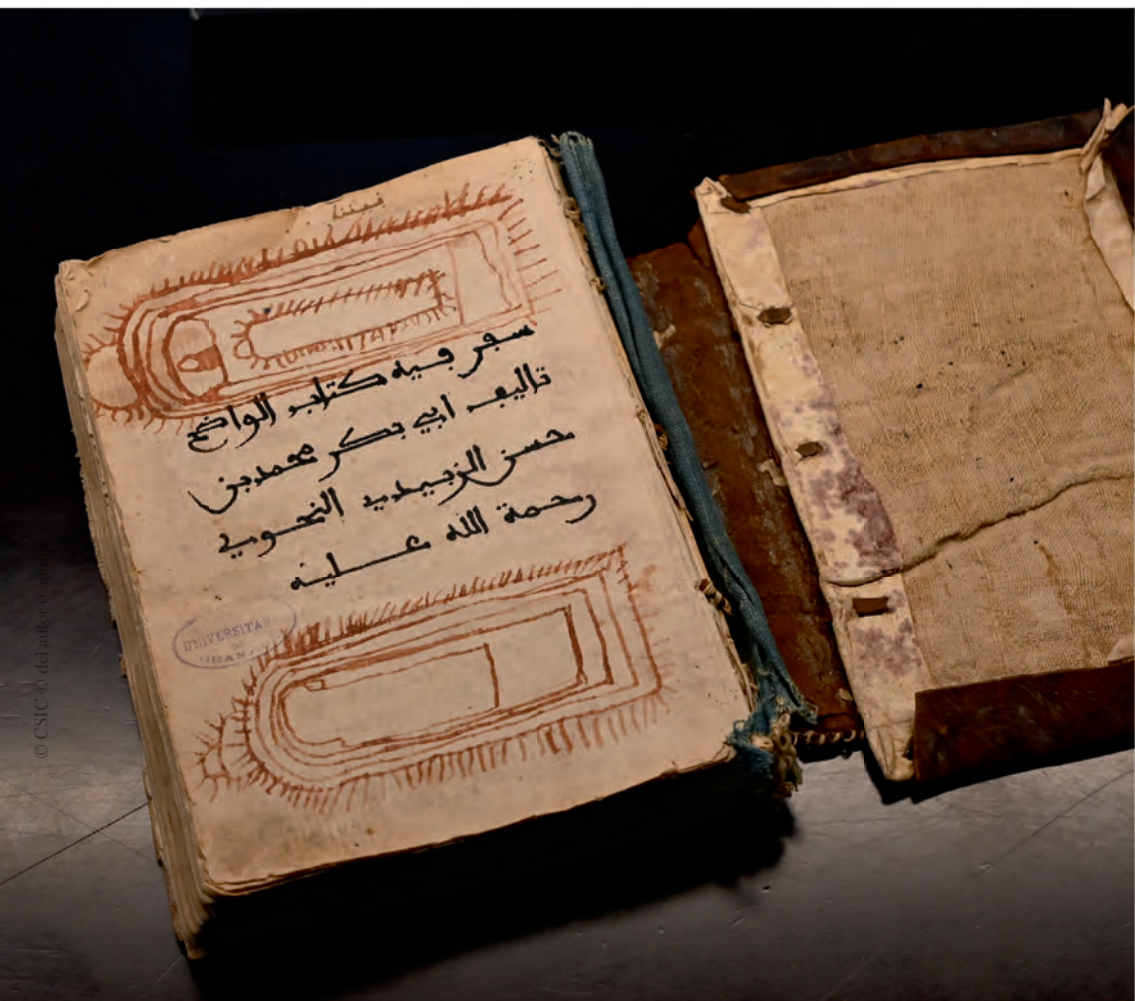 سفر فيه كتاب الواضح
تاليف ابي بكر محمد بن
حسن الزبيدي النحوي
رحمة الله عليه
UNIVERSITARIA
DE
GRANADA
© CSIC © del autor o autores